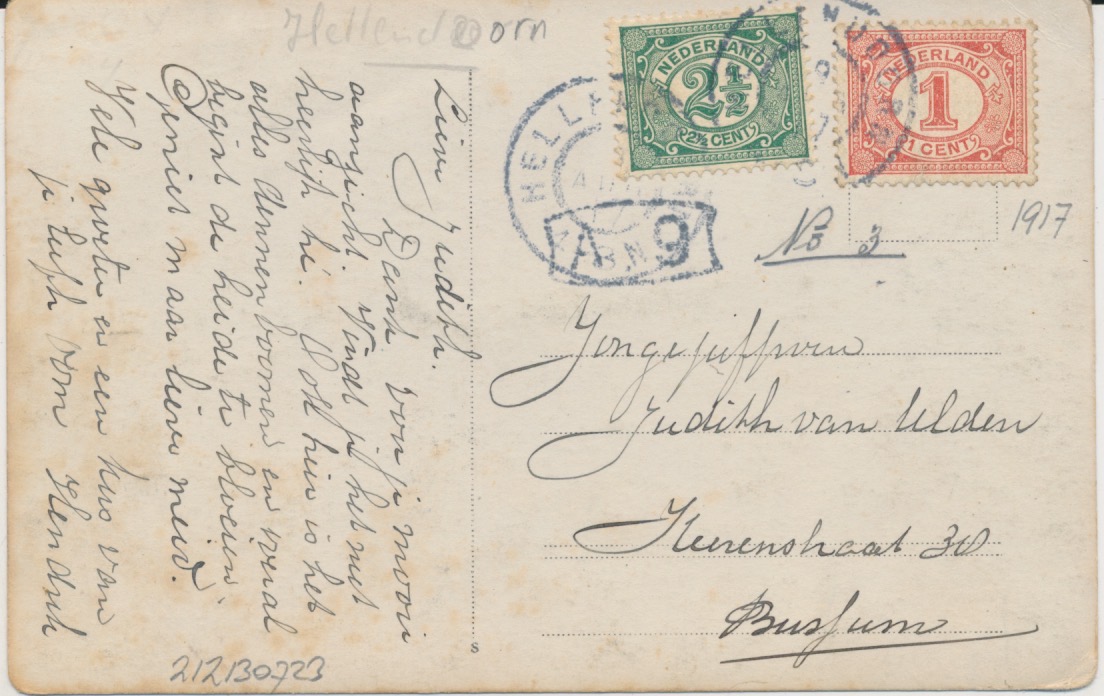 Hellendoorn
Lieve Judith.
Dank voor je mooi
aanzicht. Vindt je het niet
heerlijk hé. Ook hier is het
alles dennenboomen en overal
begint de heide te bloeien.
Geniet maar lieve meid.
Vele groeten en een kus van
je liefh. oom Hendrik
NEDERLAND
2½
2½ CENT
NEDERLAND
1
1 CENT
HELLEN
9
1917
No 3
Jongejuffrouw
Judith van Uden
Heerenstraat 30
Bussum
s
212130723